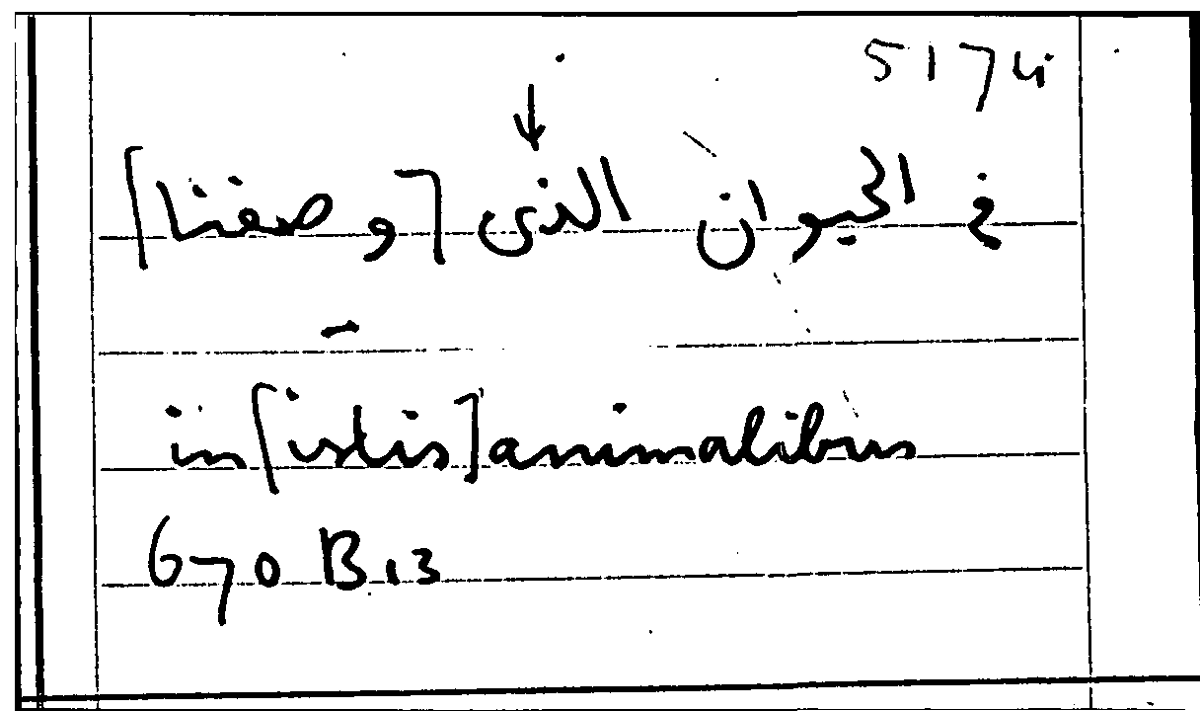 5174
↓
في الحيوان الذى [وصفنا]
in [istis] animalibus
670 B 13